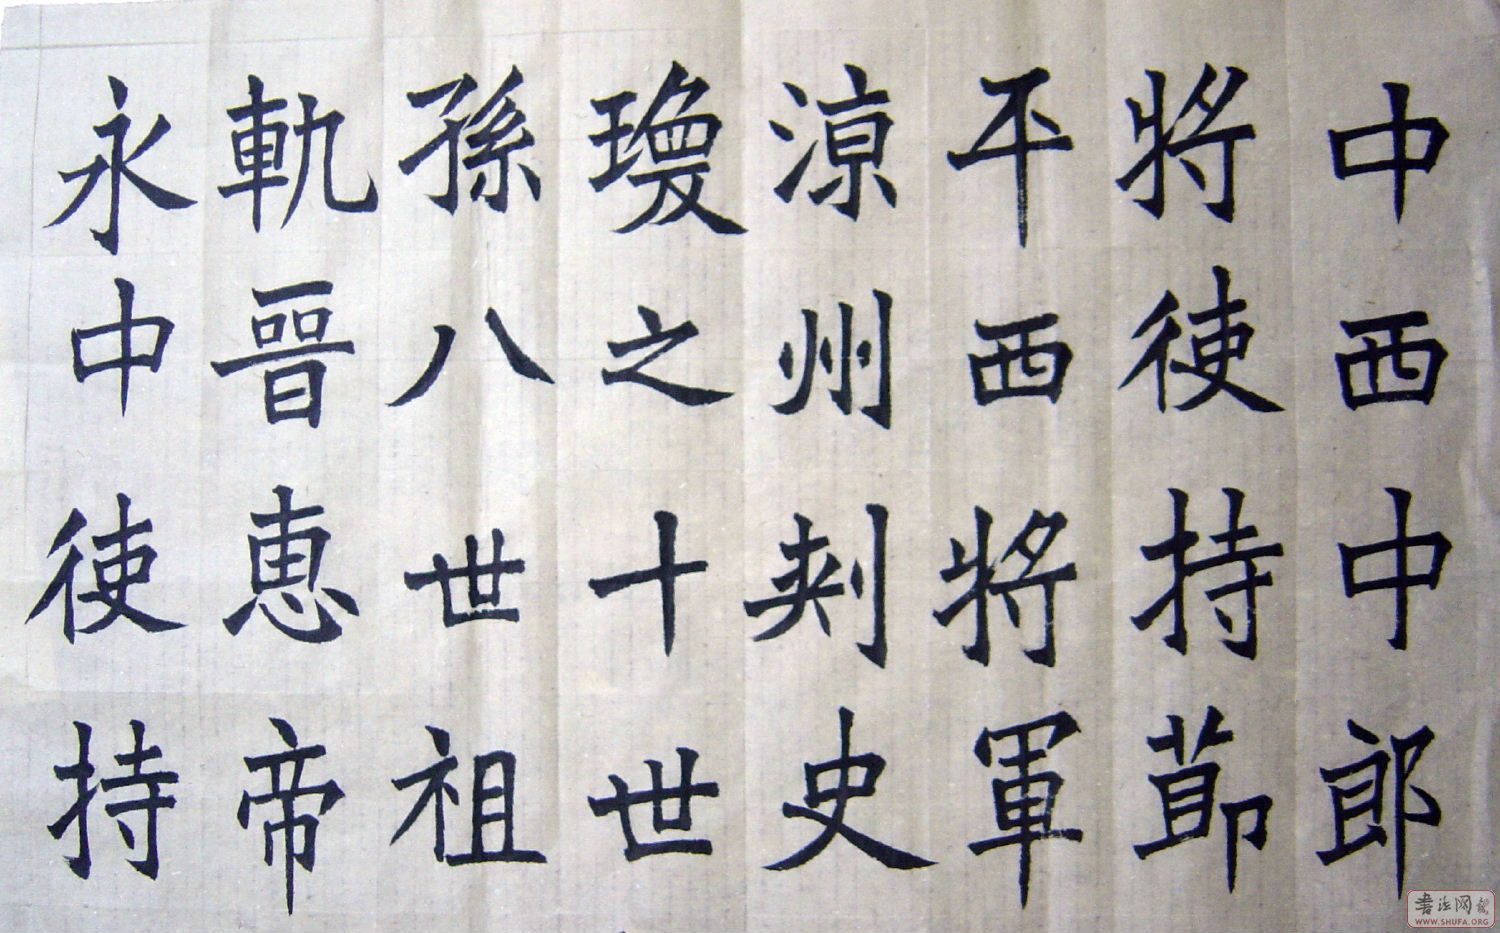 中西中郎
將使持節
平西將軍
涼州刺史
瓊之十世
孫八世祖
軌晉惠帝
永中使持
书法网
WWW.SHUFA.ORG